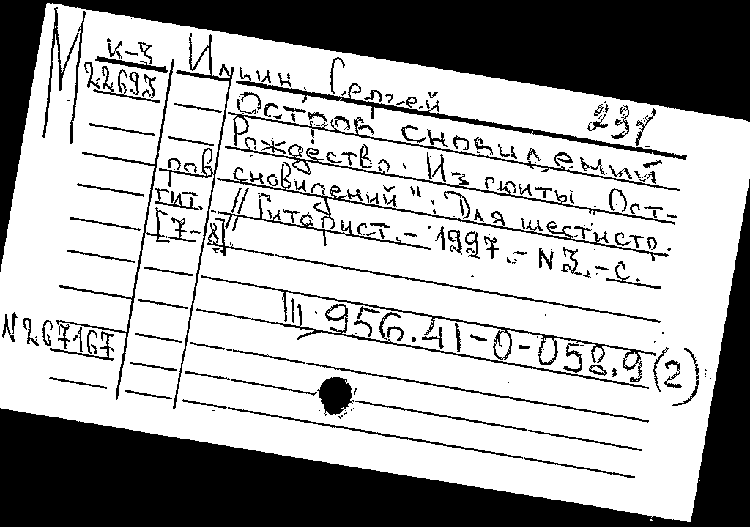 М
К-3
22693
Ильин, Сергей
231
Остров сновидений
Рождество. Из сюиты "Ост-
ров сновидений": Для шестистр.
гит. // Гитарист. - 1997. - N 3. - с.
[7-8]
Ш 956.41-0-058.9(2)
N267167